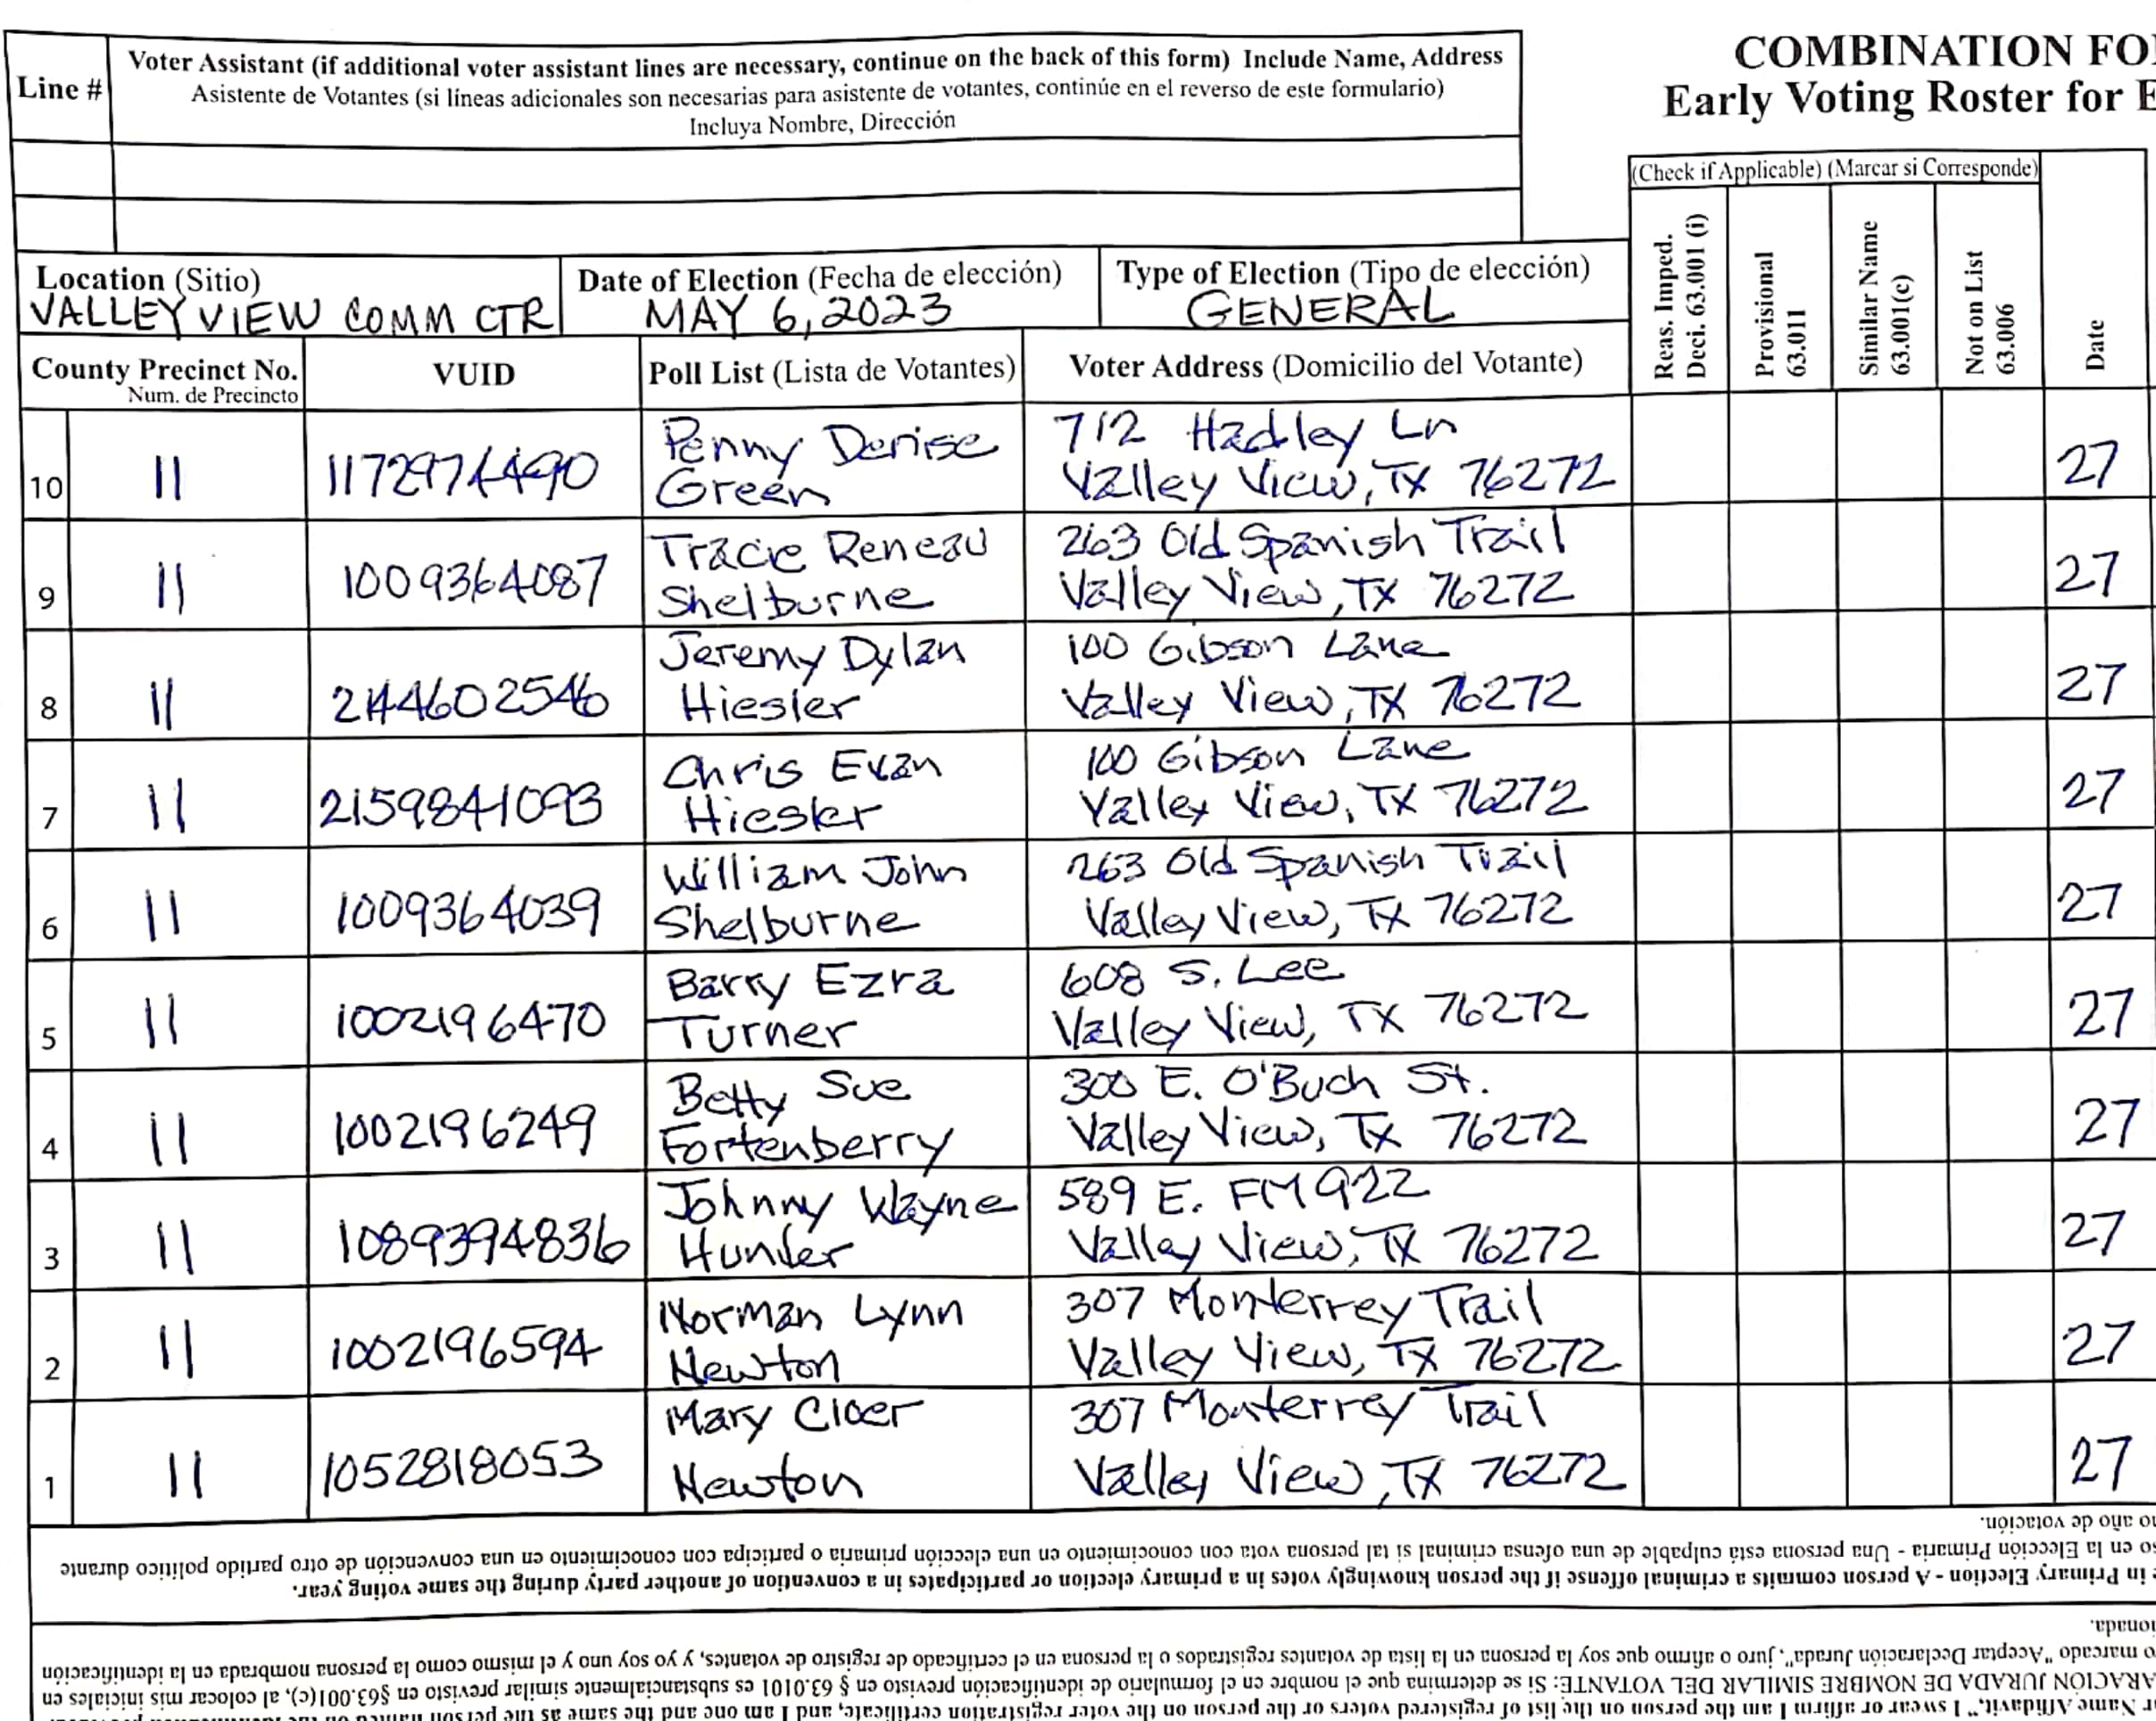 COMBINATION FO
Early Voting Roster for E
Line #
Voter Assistant (if additional voter assistant lines are necessary, continue on the back of this form) Include Name, Address
Asistente de Votantes (si líneas adicionales son necesarias para asistente de votantes, continúe en el reverso de este formulario)
Incluya Nombre, Dirección
(Check if Applicable) (Marcar si Corresponde)
Reas. Imped.
Deci. 63.001 (i)
Provisional
63.011
Similar Name
63.001(c)
Not on List
63.006
Date
Location (Sitio)
VALLEY VIEW COMM CTR
Date of Election (Fecha de elección)
MAY 6, 2023
Type of Election (Tipo de elección)
GENERAL
County Precinct No.
Num. de Precincto
VUID
Poll List (Lista de Votantes)
Voter Address (Domicilio del Votante)
10 11 Penny Denise Green 712 Hadley Ln
Valley View, TX 76272 27
9 11 1009364087 Tracie Reneau Shelburne 263 Old Spanish Trail
Valley View, TX 76272 27
8 11 2144602546 Jeremy Dylan Hiesler 100 Gibson Lane
Valley View, TX 76272 27
7 11 2159841093 Chris Evan Hiesler 100 Gibson Lane
Valley View, TX 76272 27
6 11 1009364039 William John Shelburne 263 Old Spanish Trail
Valley View, TX 76272 27
5 11 1002196470 Barry Ezra Turner 608 S. Lee
Valley View, TX 76272 27
4 11 1002196249 Betty Sue Fortenberry 300 E. O'Buch St.
Valley View, TX 76272 27
3 11 1089394836 Johnny Wayne Hunter 589 E. FM 922
Valley View, TX 76272 27
2 11 1002196594 Norman Lynn Newton 307 Monterrey Trail
Valley View, TX 76272 27
1 11 1052818053 Mary Cloer Newton 307 Monterrey Trail
Valley View, TX 76272 27
r Name Affidavit," I swear or affirm I am the person on the list of registered voters or the person on the voter registration certificate, and I am one and the same as the person
ARACIÓN JURADA DE NOMBRE SIMILAR DEL VOTANTE: Si se determina que el nombre en el formulario de identificación previsto en § 63.0101 es substancialmente similar previsto en §63.001(c), al colocar mis iniciales en
o marcado "Aceptar Declaración Jurada", juro o afirmo que soy la persona en la lista de votantes registrados o la persona en el certificado de registro de votantes, y yo soy uno y el mismo como la persona nombrada en la identificación
ionada.
e in Primary Election - A person commits a criminal offense if the person knowingly votes in a primary election or participates in a convention of another party during the same voting year.
o en la Elección Primaria - Una persona está culpable de una ofensa criminal si tal persona vota con conocimiento en una elección primaria o participa con conocimiento en una convención de otro partido político durante
o año de votación.